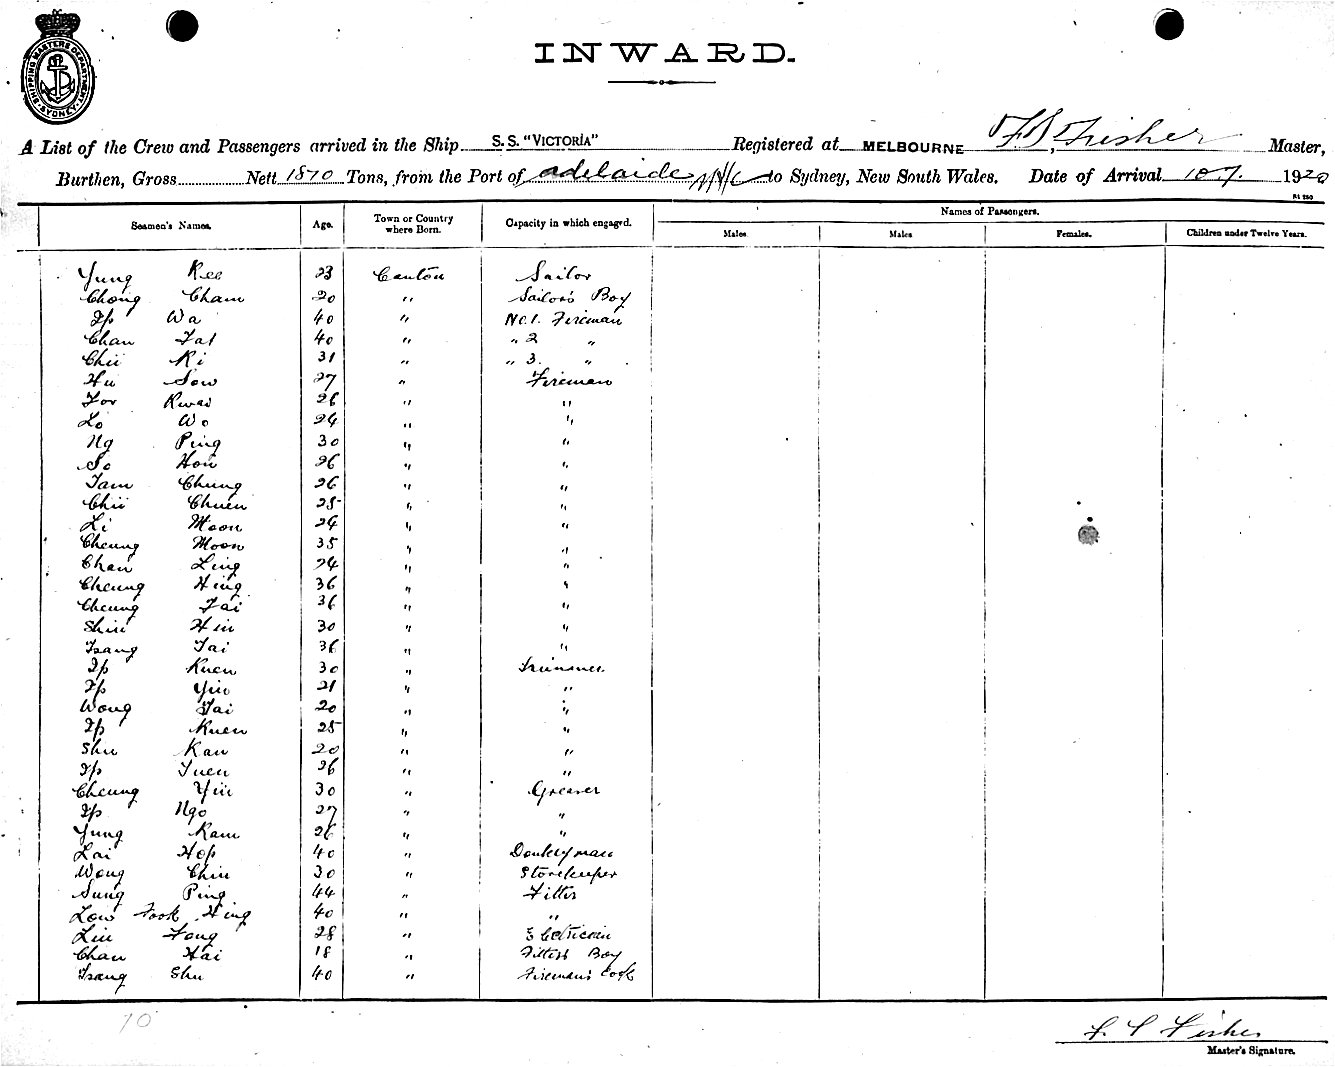 SHIPPING MASTERS DEPARTMENT SYDNEY
INWARD.
A List of the Crew and Passengers arrived in the Ship S.S. "VICTORIA" Registered at MELBOURNE, Fisher Master,
Burthen, Gross Nett 1870 Tons, from the Port of Adelaide to Sydney, New South Wales. Date of Arrival 10.7. 1920
Seamen's Names. Age. Town or Country where Born. Capacity in which engaged. Names of Passengers.
Males Males Females. Children under Twelve Years.
Yung Kee 23 Canton Sailor
Chong Cham 20 " Sailor's Boy
Ip Wa 40 " No.1. Fireman
Chan Fat 40 " " 2 "
Chii Ki 31 " " 3. "
Hu Sow 27 " Fireman
For Kwai 26 " "
Lo Wo 24 " "
Ng Ping 30 " "
So Hon 26 " "
Tam Chung 26 " "
Chii Chuen 25 " "
Li Moon 24 " "
Cheung Moon 35 " "
Chan Ling 24 " "
Cheung Hing 36 " "
Cheung Tai 36 " "
Shiu Hin 30 " "
Tsang Tai 36 " "
Ip Kuen 30 " Trimmer
Ip Yiu 21 " "
Wong Tai 20 " "
Ip Kuen 25 " "
Shu Kan 20 " "
Ip Yuen 26 " "
Cheung Yiu 30 " Greaser
Ip Ngo 27 " "
Yung Kam 26 " "
Lai Hop 40 " Donkeyman
Wong Chiu 30 " Storekeeper
Sung Ping 44 " Fitter
Low Fook Hing 40 " "
Liu Fong 28 " Electrician
Chan Hai 18 " Fitter's Boy
Tsang Shu 40 " Fireman's Cook
10
Fisher
Master's Signature.